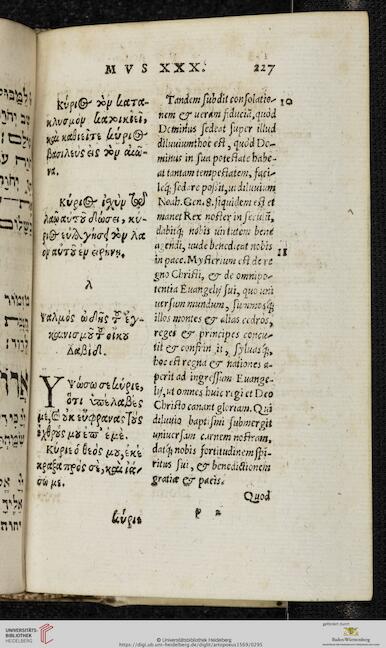 MVS XXX.
227
Κύριος τὸν κατα-
κλυσμὸν κατοικιεῖ,
καὶ καθιεῖται κύριος
βασιλεὺς εἰς τὸν αἰῶ-
να.
Κύριος ἰχὺν τῷ
λαῷ αὐτοῦ δώσει, κύ-
ριος εὐλογήσει τὸν λα
ὸν αὐτοῦ ἐν εἰρήνῃ.
λ
ψαλμὸς ᾠδῆς τοῦ ἐγ-
καινισμοῦ τοῦ οἴκου
Δαβίδ.
Υψώσω σε κύριε,
ὅτι ὑπέλαβές
με, καὶ οὐκ εὔφρανας τοὺς
ἐχθρούς μου ἐπ' ἐμέ.
Κύριε ὁ θεός μου, ἐκέ
κραξα πρός σέ, καὶ ἰά-
σω με.
κύριε
Tandem subdit consolatio-
nem & ueram fiduciã, quòd
Dominus sedeat super illud
diluuium: hoc est, quòd Do-
minus in sua potestate habe-
at tantam tempestatem, faci-
leq́; sedare possit, ut diluuium
Noah. Gen. 8. siquidem est et
manet Rex noster in seculũ,
dabitq́; nobis uirtutem bene
agendi, unde benedicat nobis
in pace. Mysterium est de re
gno Christi, & de omnipo-
tentia Euangelij sui, quo uni
uersum mundum, summosq́;
illos montes & altas cedros,
reges & principes concu-
tit & confringit, syluasq́;,
hoc est regna & nationes a-
perit ad ingressum Euange-
lij, ut omnes huic regi et Deo
Christo canant gloriam. Qui
diluuio baptismi submergit
uniuersam carnem nostram,
datq́; nobis fortitudinem spi-
ritus sui, & benedictionem
gratiæ & pacis.
Quod
p 2
10
11
UNIVERSITÄTS-
BIBLIOTHEK
HEIDELBERG
© Universitätsbibliothek Heidelberg
https://digi.ub.uni-heidelberg.de/diglit/artopoeus1569/0295
gefördert durch
Baden-Württemberg